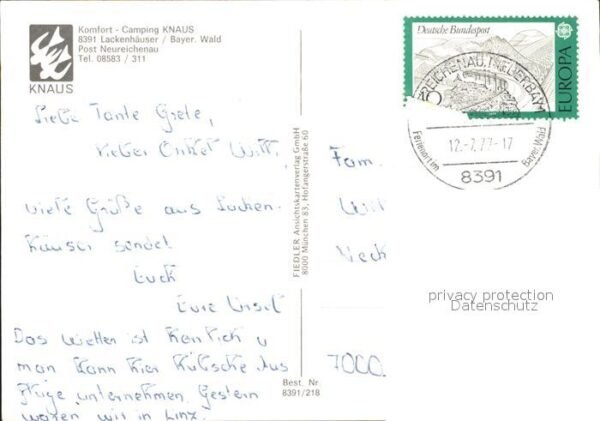 Komfort - Camping KNAUS
8391 Lackenhäuser / Bayer. Wald
Post Neureichenau
Tel. 08583 / 311
KNAUS
Liebe Tante Grete,
lieber Onkel Willi,
viele Grüße aus Lacken-
häuser sendet
Euch
Eure Ursel
Das Wetter ist herrlich u
man kann hier hübsche Aus
flüge unternehmen. Gestern
waren wir in Linz.
FIEDLER Ansichtskartenverlag GmbH
8000 München 83, Hofangerstraße 60
Best. Nr.
8391/218
Deutsche Bundespost
40
EUROPA
REICHENAU, NIEDERBAY
12.-7.77-17
Ferienort im
Bayer Wald
8391
Fam.
Wil
Neck
privacy protection
Datenschutz
7000